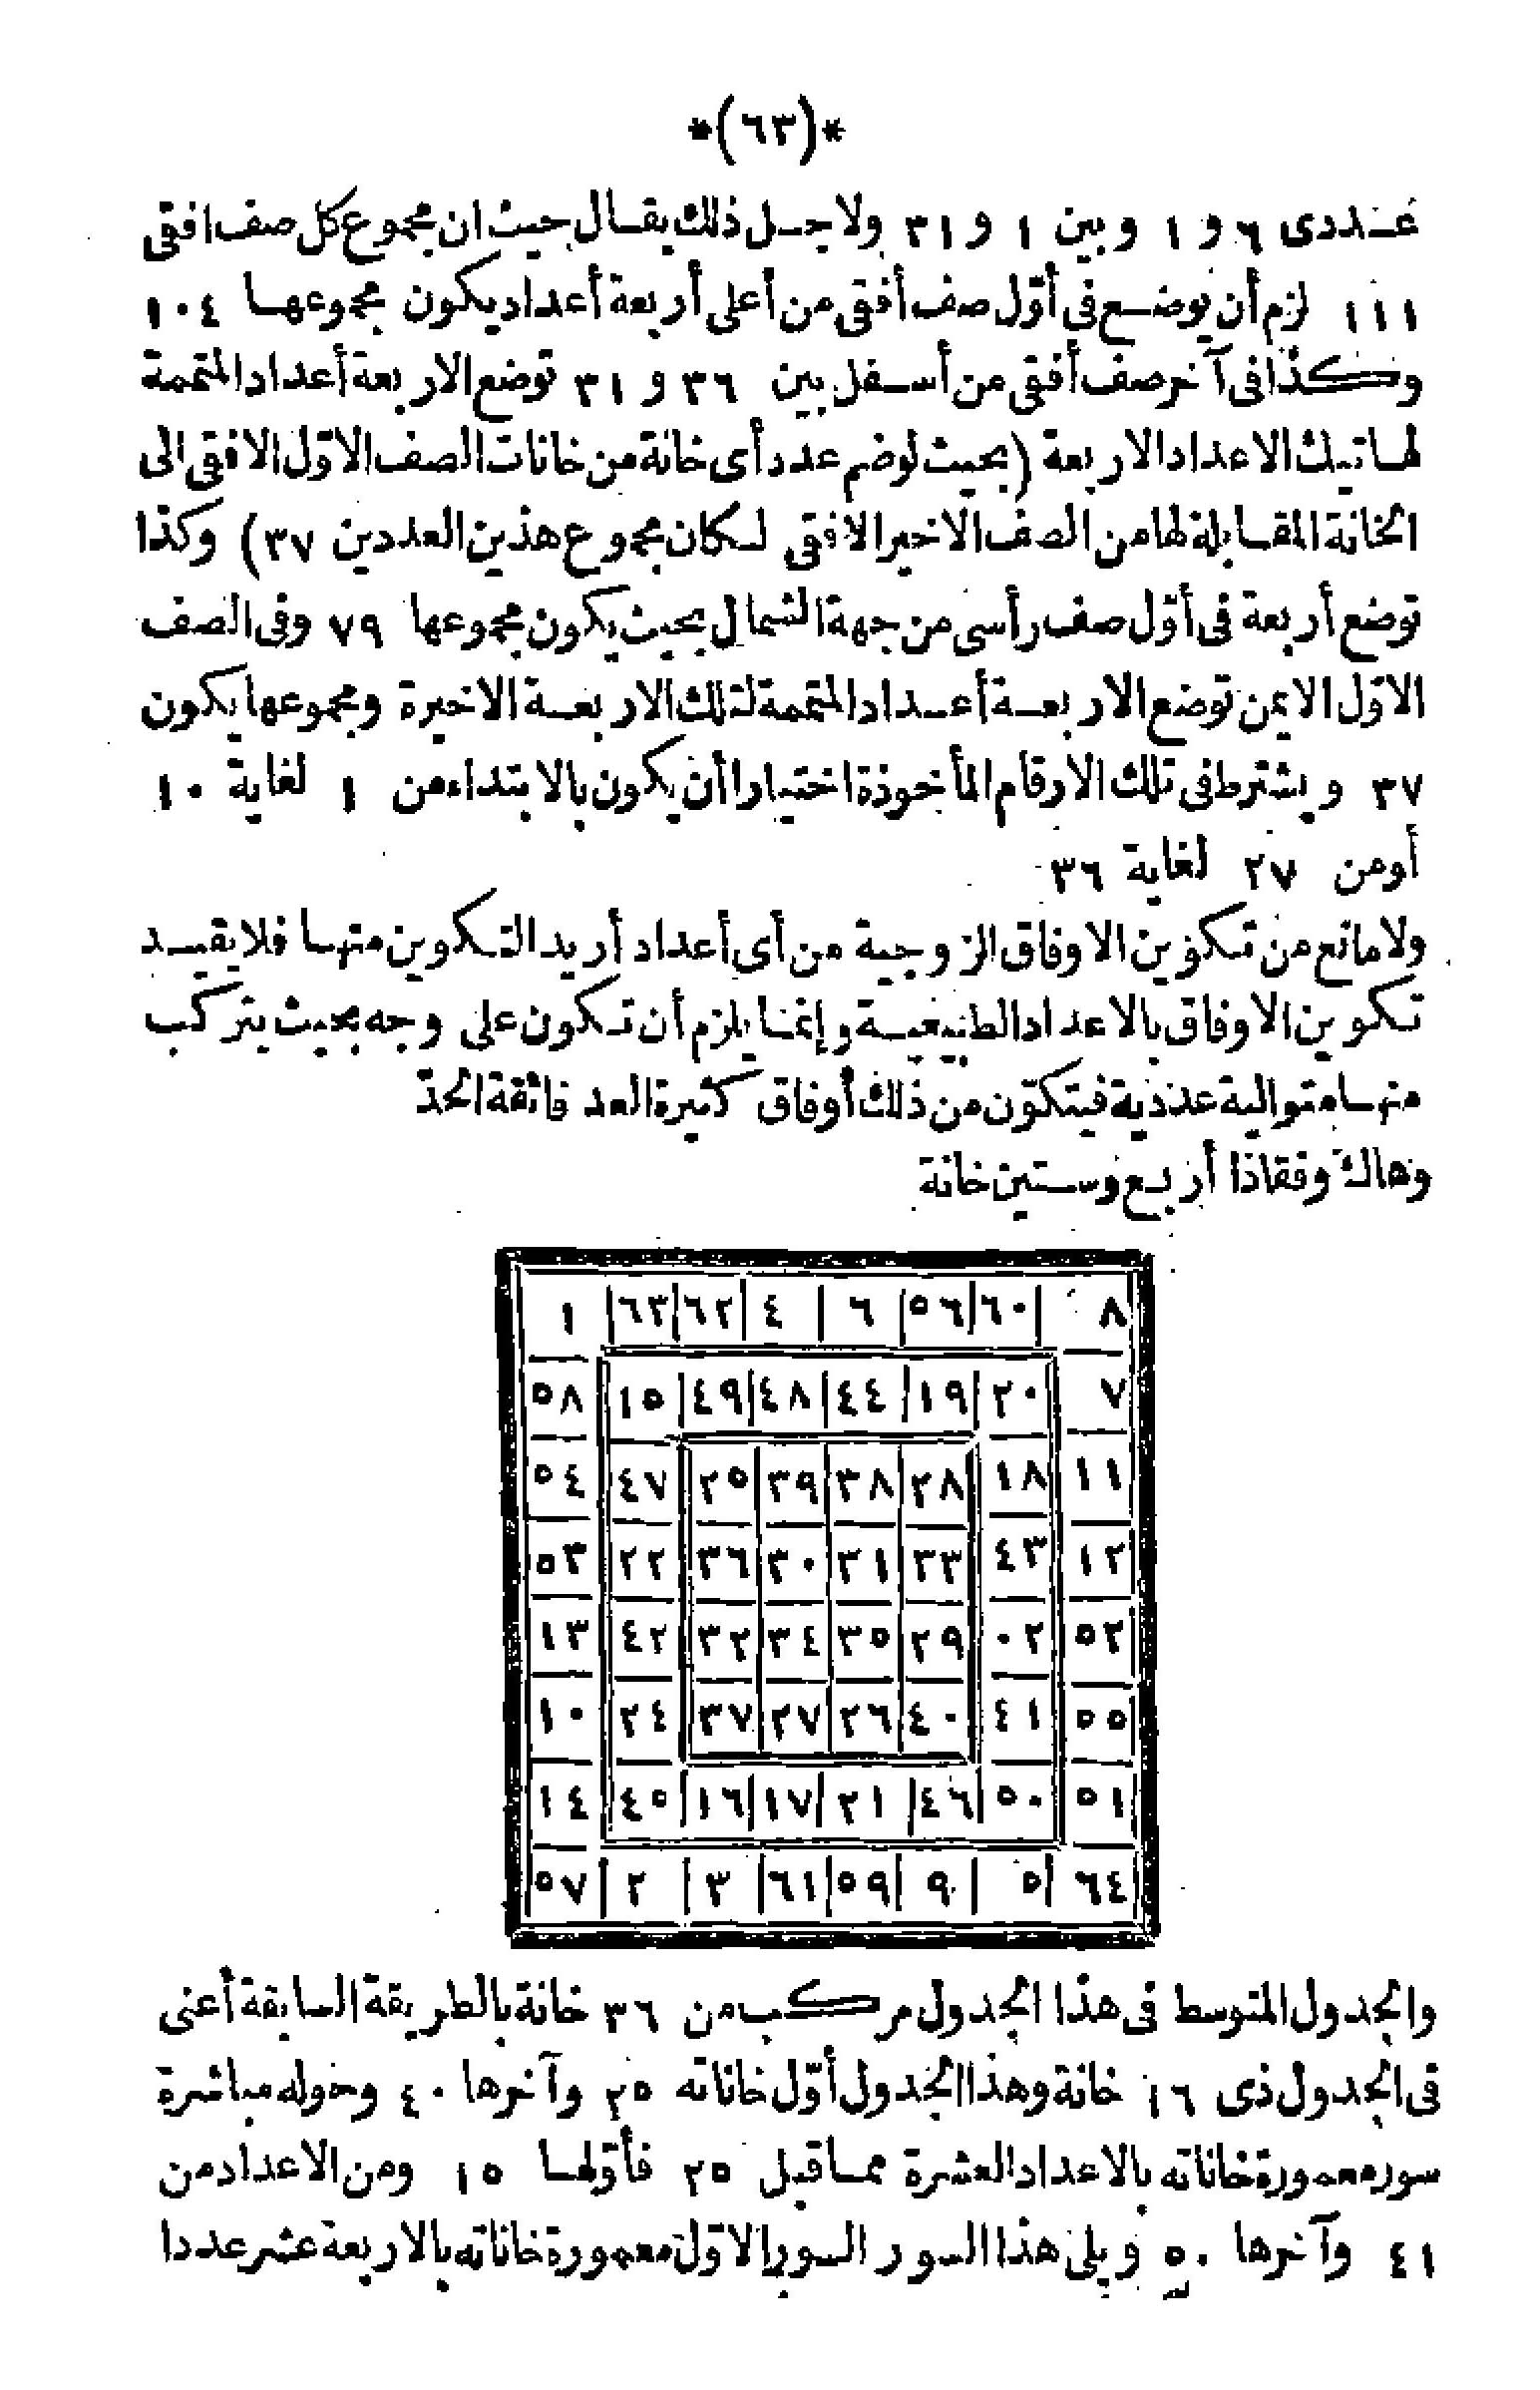 *(٦٣)*
عـددى ٦ و ١ وبين ١ و ٣١ ولاجـل ذلك يقـال حيث ان مجموع كل صف افقى
١١١ لزم أن يوضـع فى أوّل صف أفقى من أعلى أربعة أعداد يكون مجموعهـا ١٠٤
وكذا فى آخر صف أفقى من أسـفل بين ٣٦ و ٣١ توضع الاربعة أعداد المتممة
لهـاتيك الاعداد الاربعة (بحيث لوضم عدد أى خانة من خانات الصف الاوّل الافقى الى
الخانة المقـابلة لها من الصف الاخير الافقى لـكان مجموع هذين العددين ٣٧) وكذا
توضع أربعة فى أوّل صف رأسى من جهة الشمال بحيث يكون مجموعها ٧٩ وفى الصف
الاوّل الايمن توضع الاربعـة أعـداد المتممة لتلك الاربعـة الاخيرة ومجموعها يكون
٣٧ ويشترط فى تلك الارقام المأخوذة اختيارا أن يكون بالابتداء من ١ لغاية ١٠
أومن ٢٧ لغاية ٣٦
ولامانع من تـكوين الاوفاق الزوجية من أى أعداد أريد التـكوين منهـا فلا يقيـد
تـكوين الاوفاق بالاعداد الطبيعيـة وإنمـا يلزم أن تـكون على وجه بحيث يتركب
منهـا متوالية عددية فيتكوّن من ذلك أوفاق كثيرة العد فائقة الحدّ
وهاك وفقا ذا أربـع وسـتين خانة
١ ٦٣ ٦٢ ٤ ٦ ٥٦ ٦٠ ٨
٥٨ ١٥ ٤٩ ٤٨ ٤٤ ١٩ ٢٠ ٧
٥٤ ٤٧ ٢٥ ٣٩ ٣٨ ٢٨ ١٨ ١١
٥٣ ٢٢ ٣٦ ٣٠ ٣١ ٣٣ ٤٣ ١٢
١٣ ٤٢ ٣٢ ٣٤ ٣٥ ٢٩ ٠٢ ٥٢
١٠ ٢٤ ٣٧ ٢٧ ٢٦ ٤٠ ٤١ ٥٥
١٤ ٤٥ ١٦ ١٧ ٢١ ٤٦ ٥٠ ٥١
٥٧ ٢ ٣ ٦١ ٥٩ ٩ ٥ ٦٤
والجدول المتوسط فى هذا الجدول مركب من ٣٦ خانة بالطريقة السابقة أعنى
فى الجدول ذى ١٦ خانة وهذا الجدول أوّل خاناته ٢٥ وآخرها ٤٠ وحوله مباشرة
سوره معمورة خاناته بالاعداد العشرة ممـا قبل ٢٥ فأوّلهـا ١٥ ومن الاعداد من
٤١ وآخرها ٥٠ ويلى هذا السور السور الاوّل معمورة خاناته بالاربعة عشر عددا